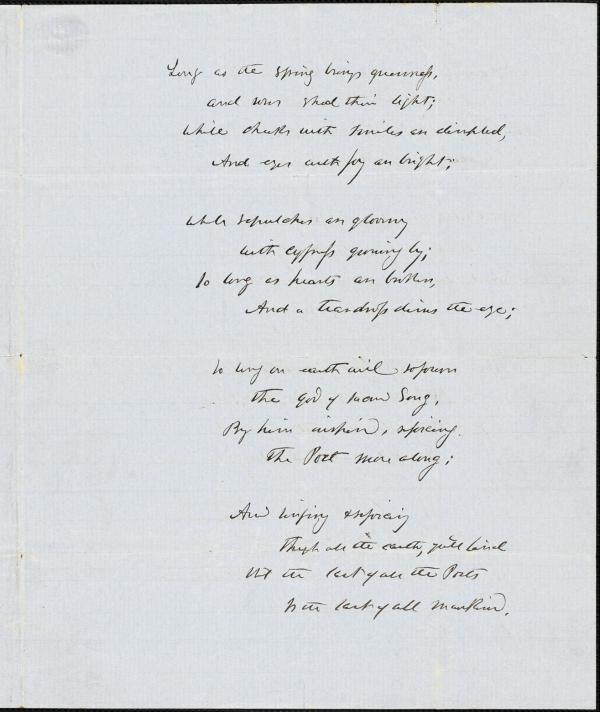 Long as the spring brings greenness,
and suns shed their light;
While cheeks with smiles are dimpled,
And eyes with joy are bright;
While sepulchres are gloomy
with cypress growing by;
So long as hearts are broken
And a teardrop dims the eye;
So long on earth will sojourn
The god of sacred Song,
By him inspired, rejoicing
The Poet move along;
And singing & rejoicing
Through all the earth, you'll find
the last of all the Poets
Is the last of all mankind.